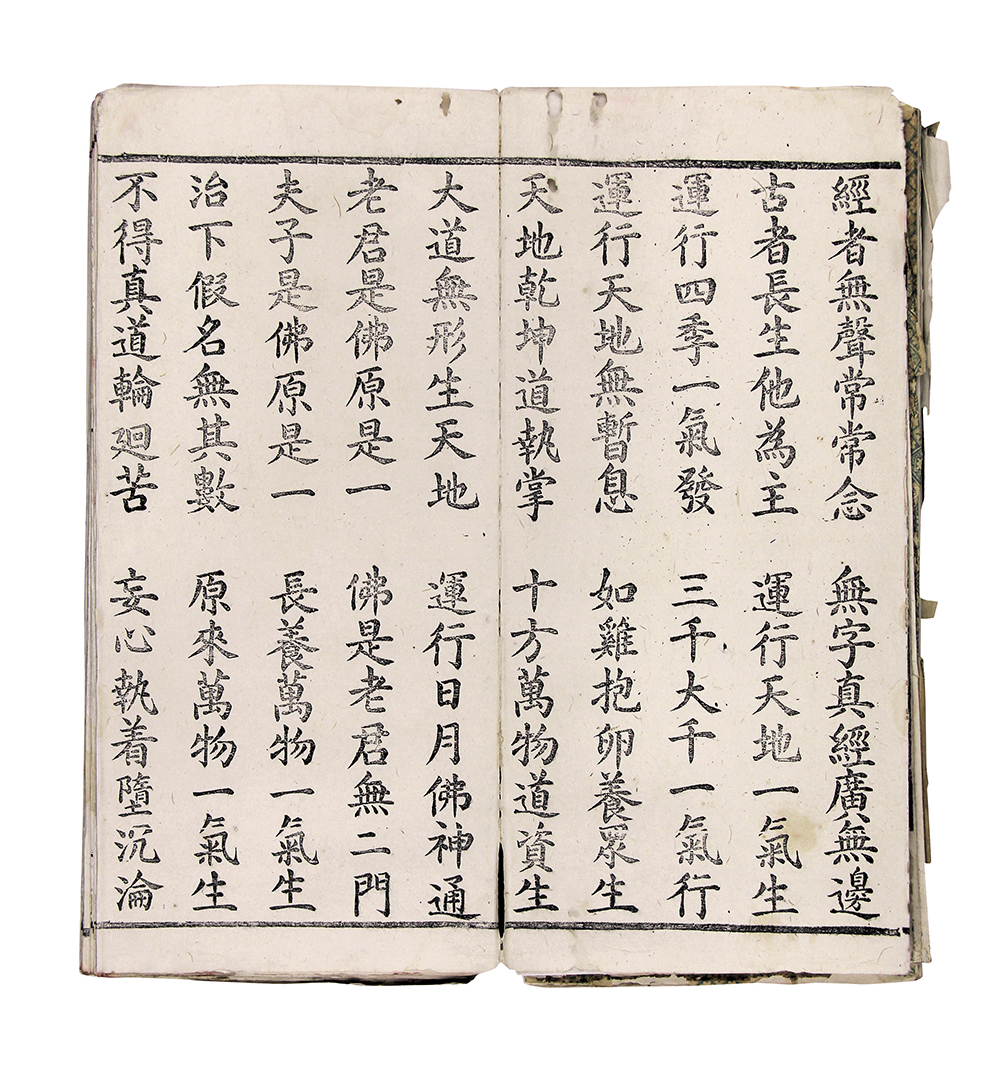 經者無聲常常念　無字真經廣無邊
古者長生他為主　運行天地一氣生
運行四季一氣發　三千大千一氣行
運行天地無暫息　如雞抱卵養眾生
天地乾坤道執掌　十方萬物道資生
大道無形生天地　運行日月佛神通
老君是佛原是一　佛是老君無二門
夫子是佛原是一　長養萬物一氣生
治下假名無其數　原來萬物一氣生
不得真道輪廻苦　妄心執着墮沉淪